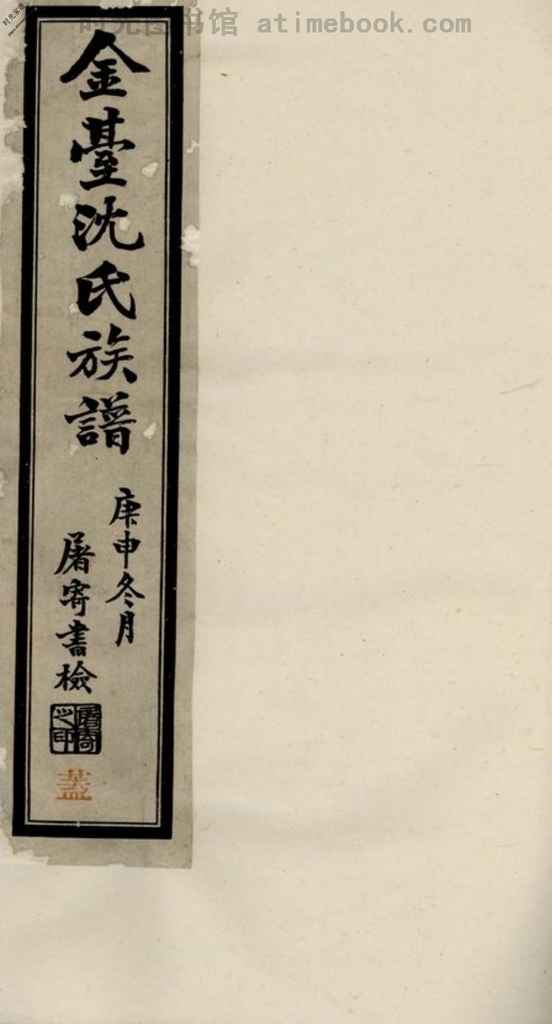 时光图书馆 atimebook.com
金臺沈氏族譜
庚申冬月
屠寄書檢
屠寄之印
蓋